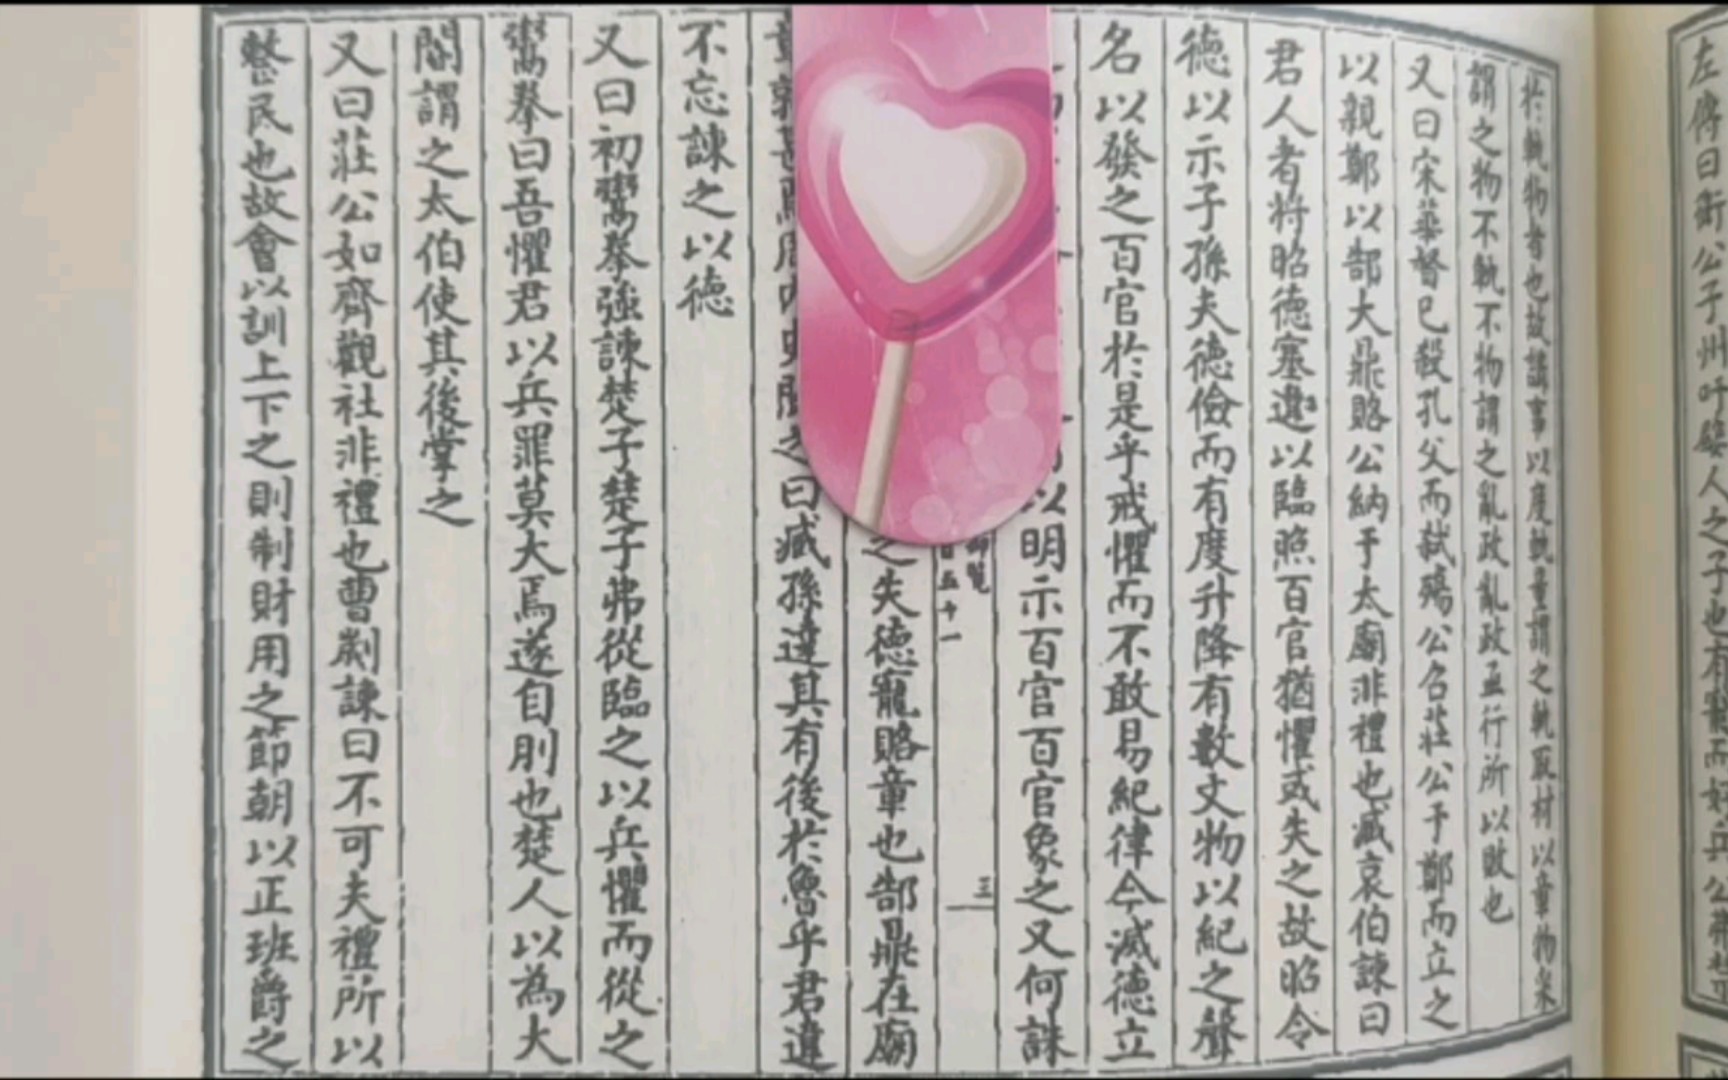 左傳曰衛公子州吁嬖人之子也有寵而好兵公弗禁
於軌物者也故講事以度軌量謂之軌取材以章物采
謂之物不軌不物謂之亂政亂政亟行所以敗也
又曰宋華督已殺孔父而弒殤公召莊公于鄭而立之
以親鄭以郜大鼎賂公納于太廟非禮也臧哀伯諫曰
君人者將昭德塞違以臨照百官猶懼或失之故昭令
德以示子孫夫德儉而有度升降有數文物以紀之聲
名以發之百官於是乎戒懼而不敢易紀律今滅德立
以明示百官百官象之又何誅
覽 五十一 三
之失德寵賂章也郜鼎在廟
之曰臧孫達其有後於魯乎君違
不忘諫之以德
又曰初鬻拳強諫楚子楚子弗從臨之以兵懼而從之
鬻拳曰吾懼君以兵罪莫大焉遂自刖也楚人以為大
閽謂之太伯使其後掌之
又曰莊公如齊觀社非禮也曹劌諫曰不可夫禮所以
整民也故會以訓上下之則制財用之節朝以正班爵之